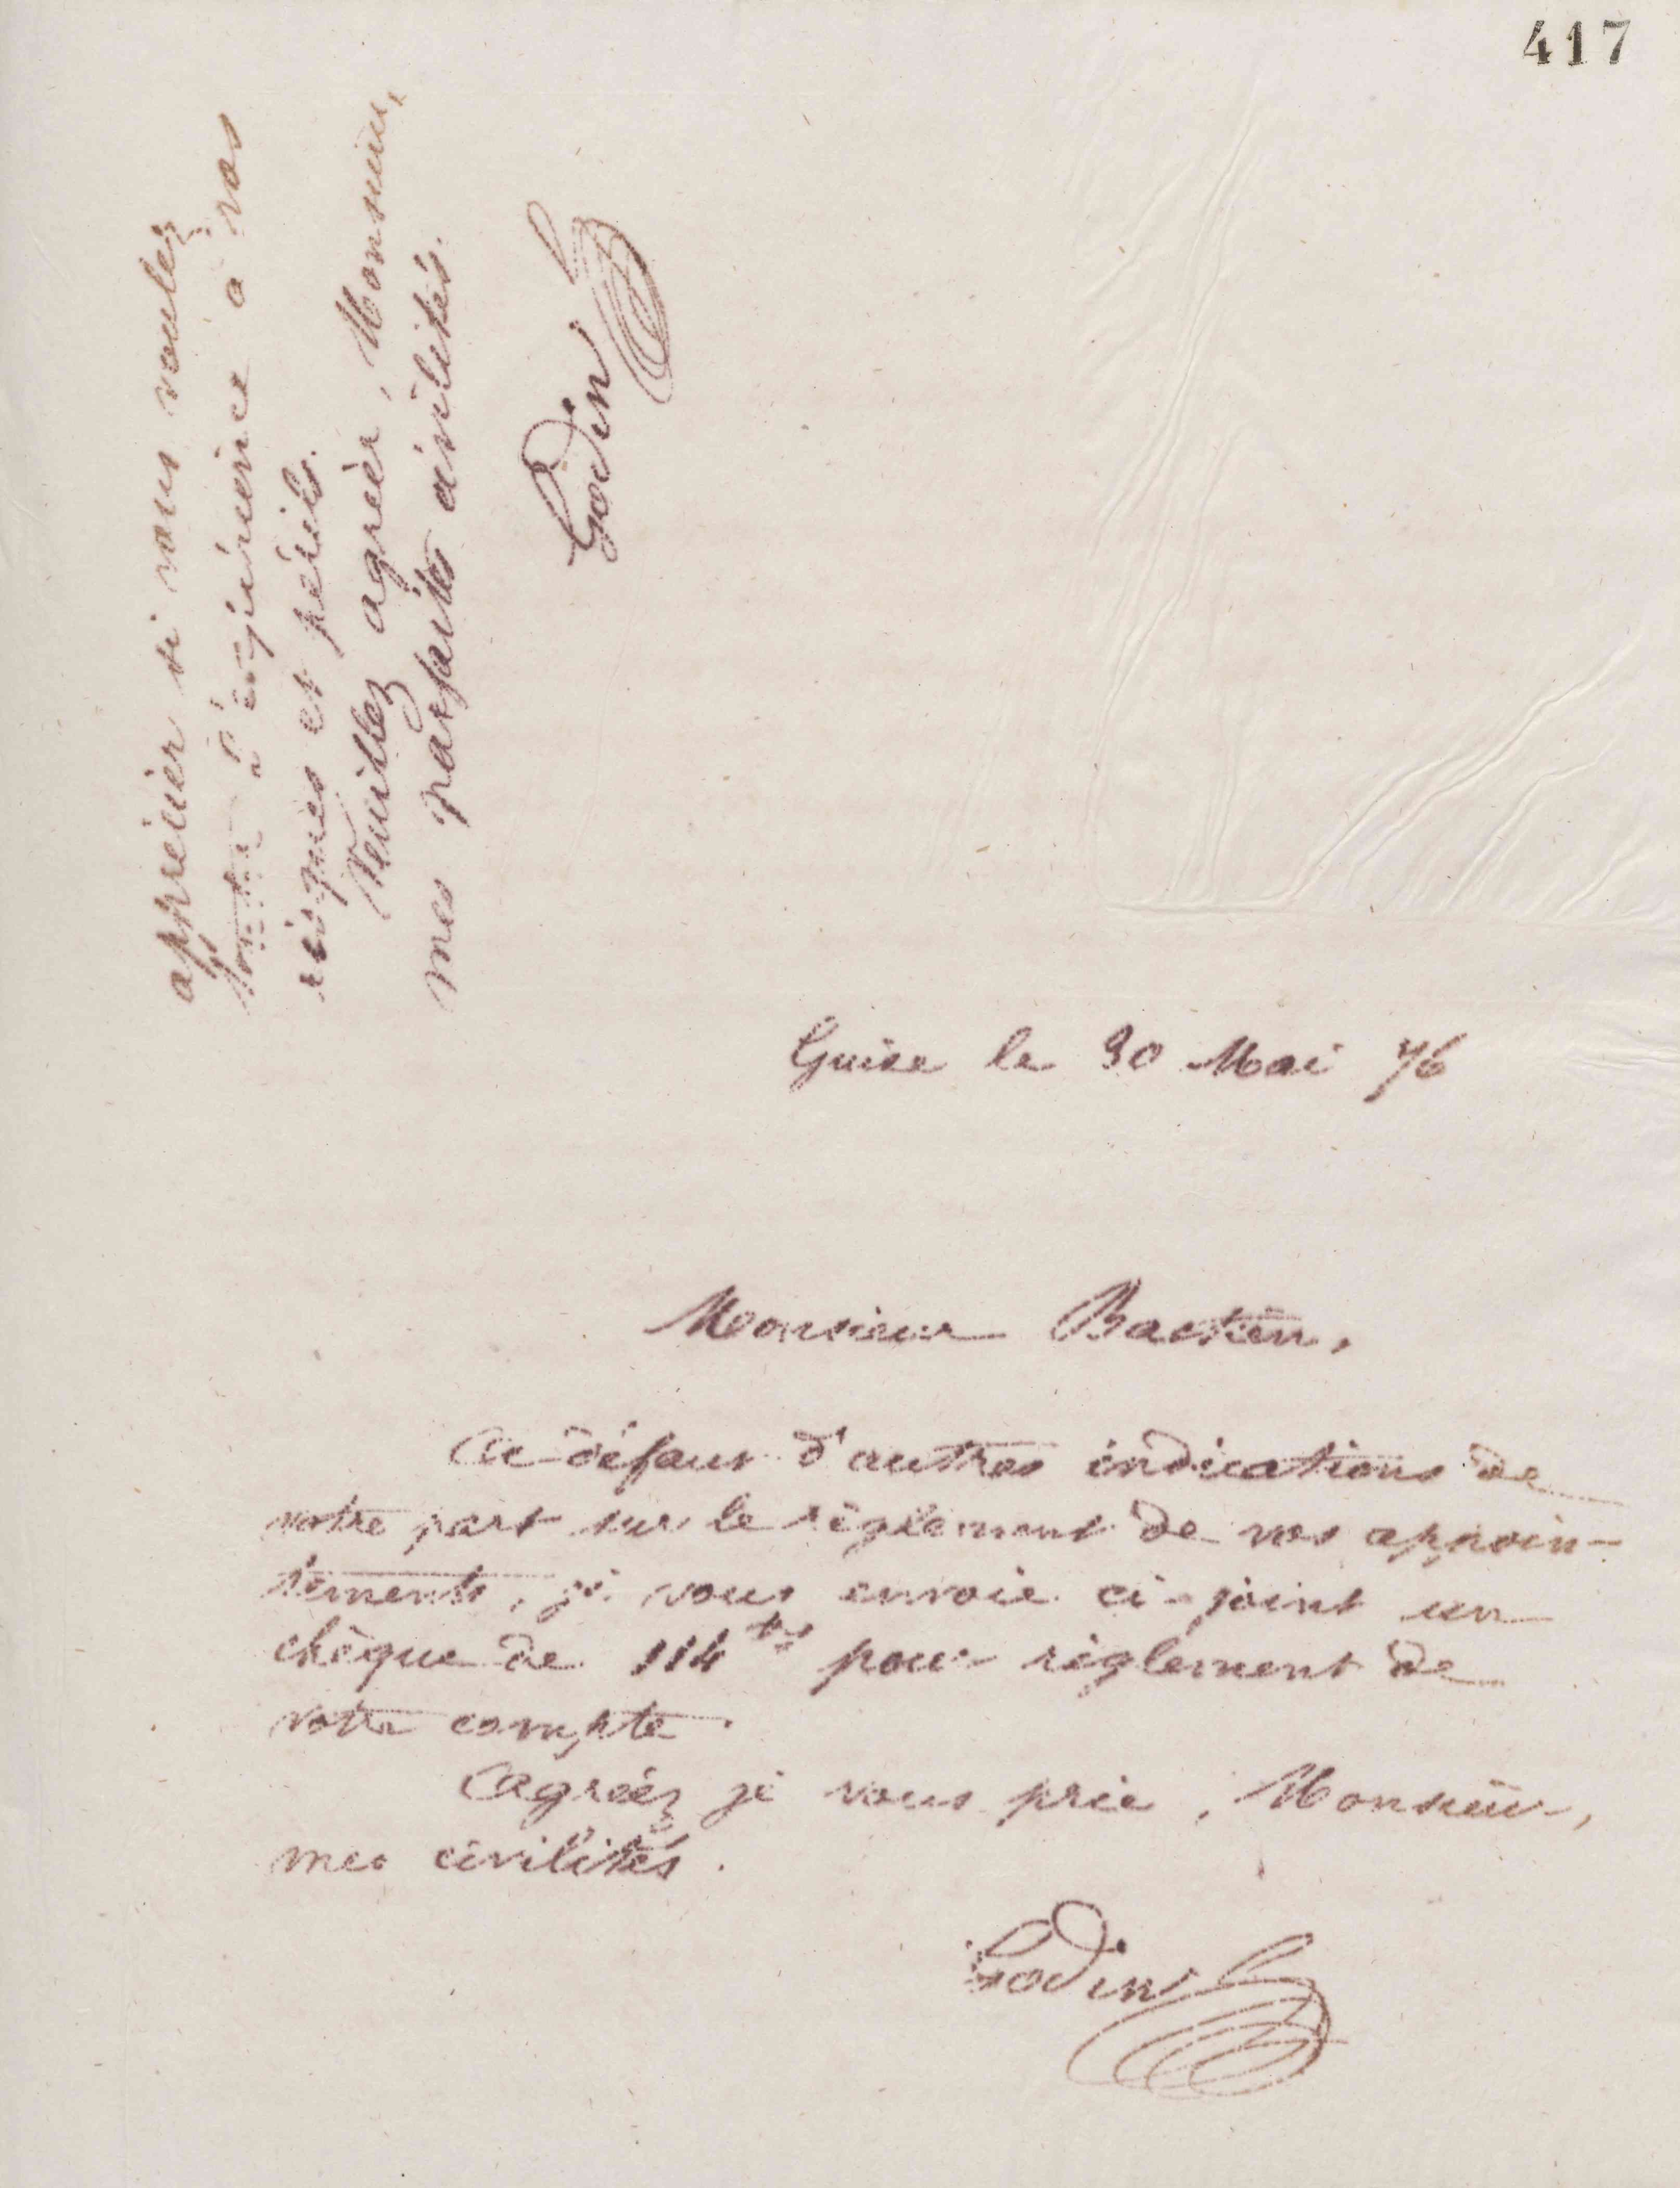 417
apprécier si vous voulez
tenter l'expérience à vos
risques et périls.
Veuillez agréer, Monsieur,
mes parfaites civilités.
Godin
Guise le 30 Mai 76
Monsieur Bastien,
A défaut d'autres indications de
votre part sur le règlement de vos appoin-
tements, je vous envoie ci-joint un
chèque de 114 pour règlement de
votre compte.
Agréez je vous prie, Monsieur,
mes civilités.
Godin